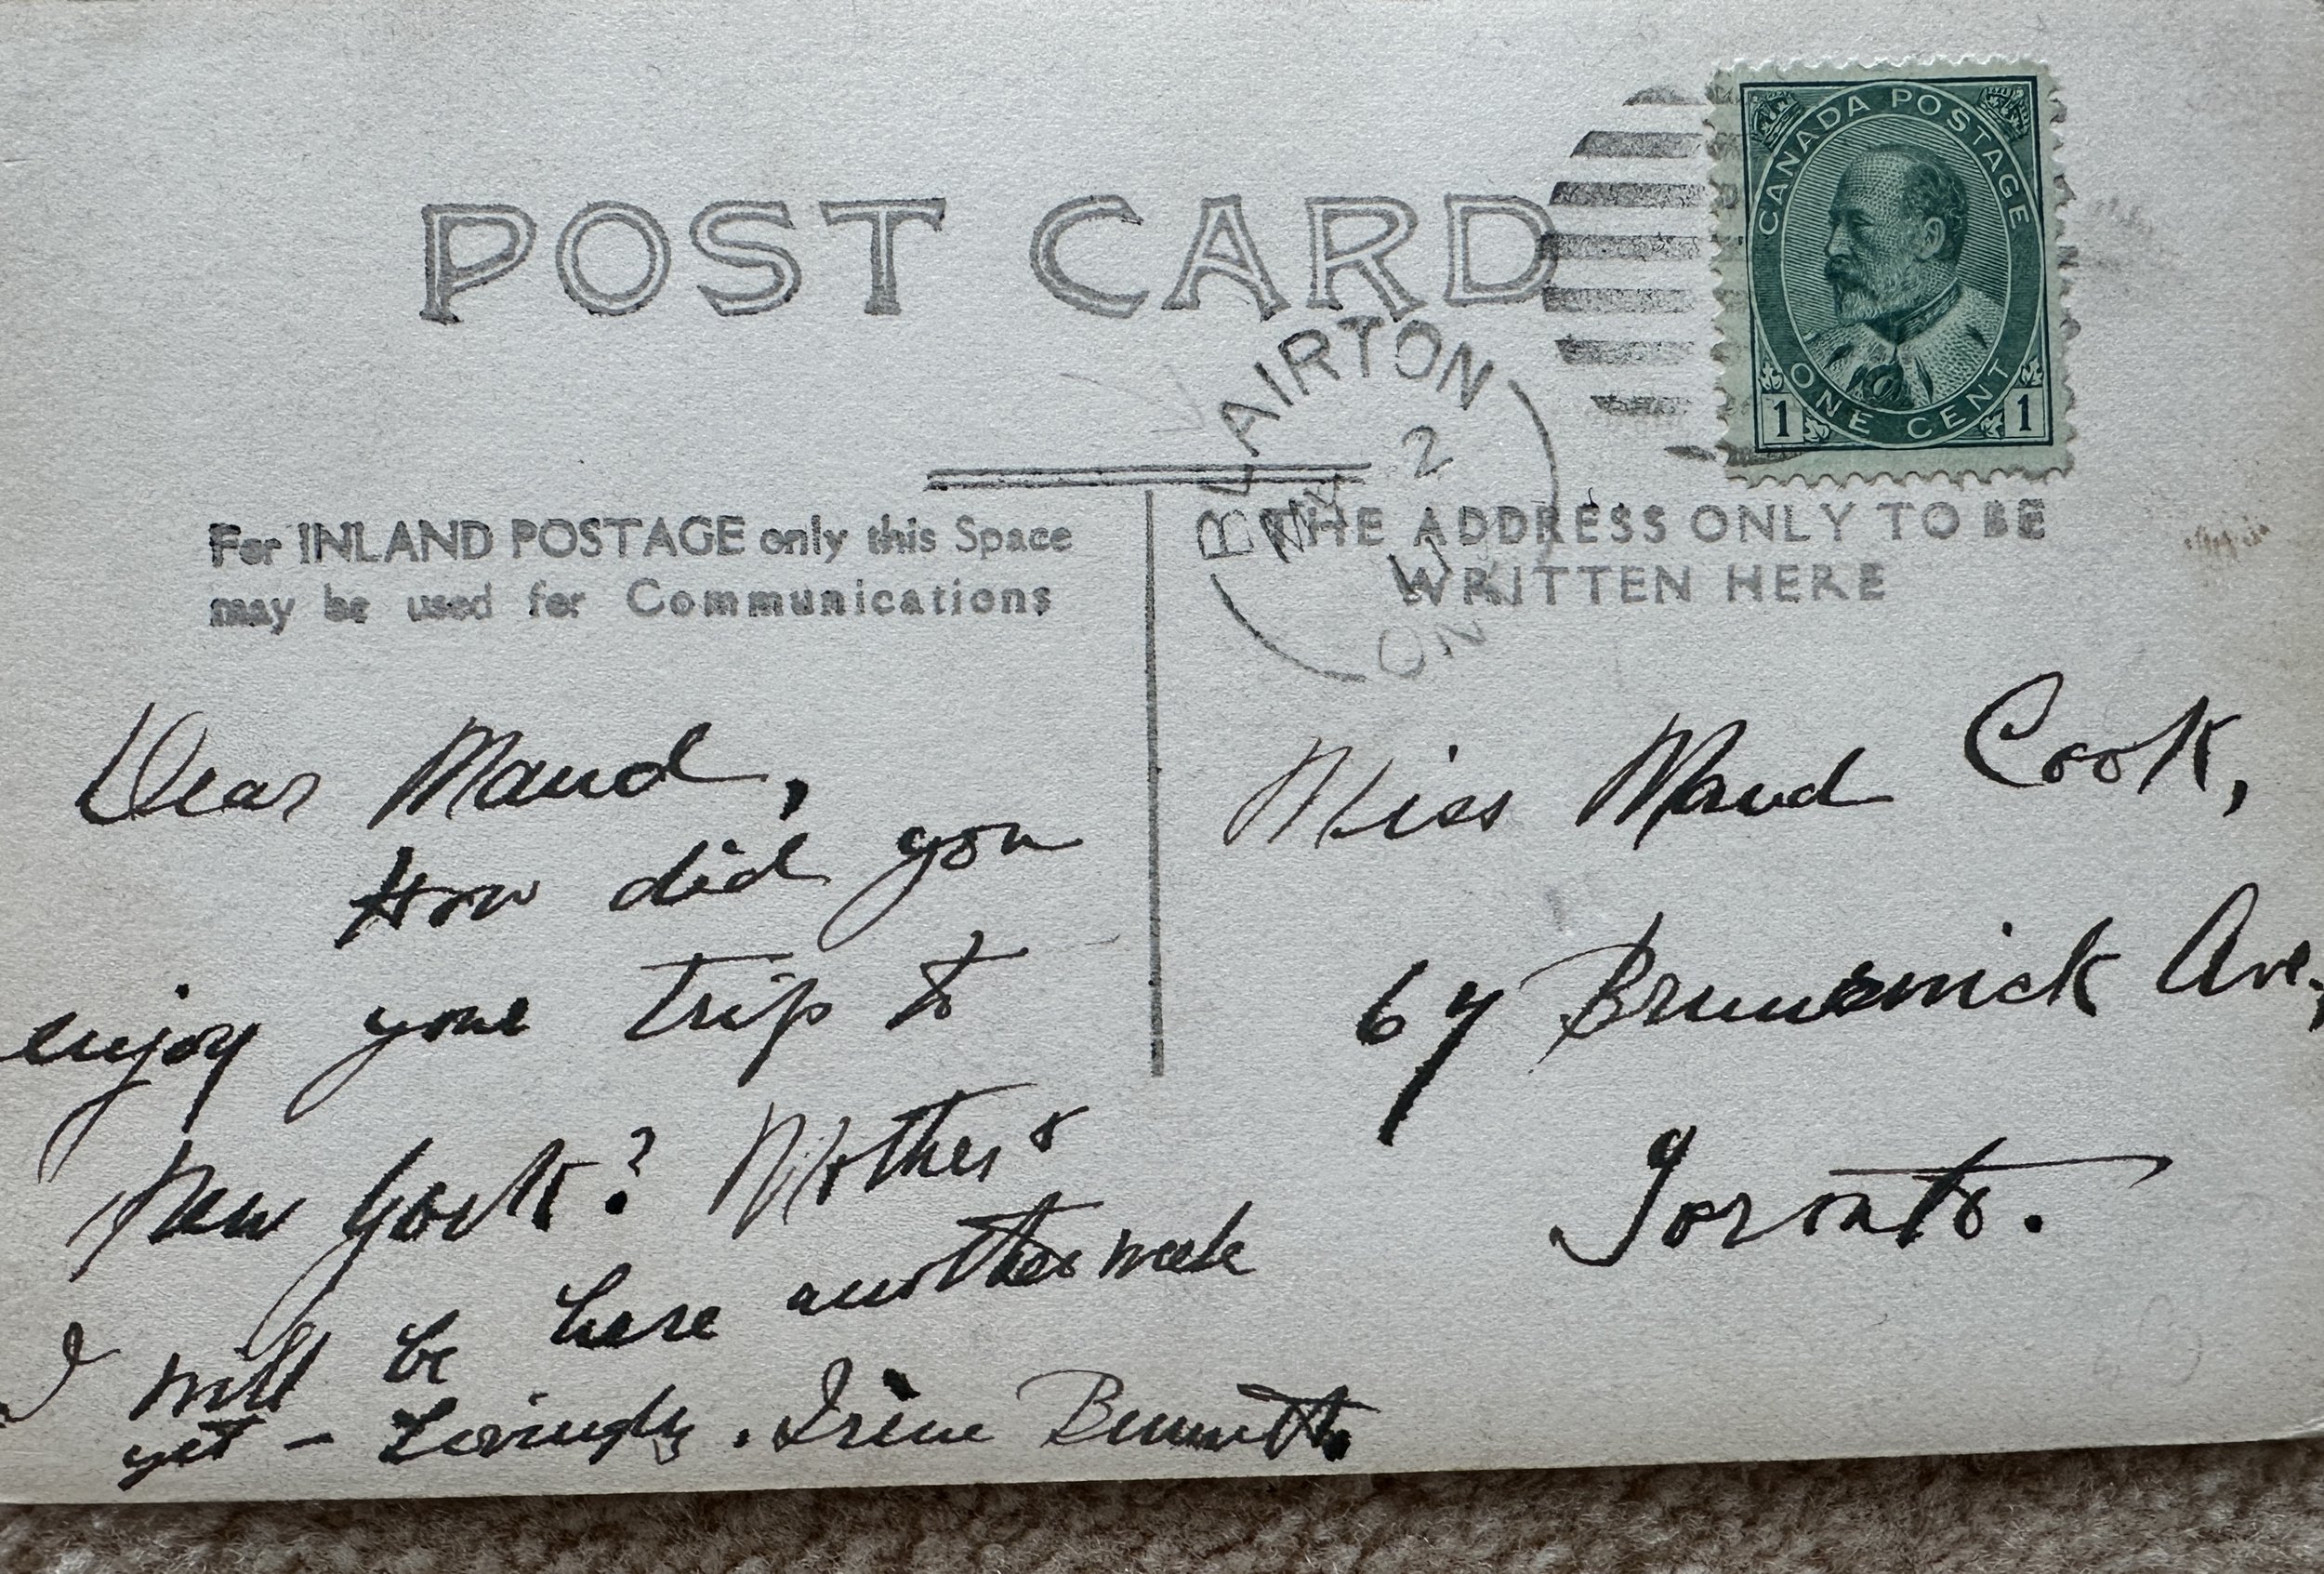 POST CARD
CANADA POSTAGE
ONE CENT
1 1
BLAIRTON
MY 2
11
ONT
For INLAND POSTAGE only this Space
may be used for Communications
THE ADDRESS ONLY TO BE
WRITTEN HERE
Dear Maud,
How did you
enjoy your trip to
New York? Mother &
I will be here another week
yet - Lovingly. Irene Bennett.
Miss Maud Cook,
67 Brunswick Ave.,
Toronto.